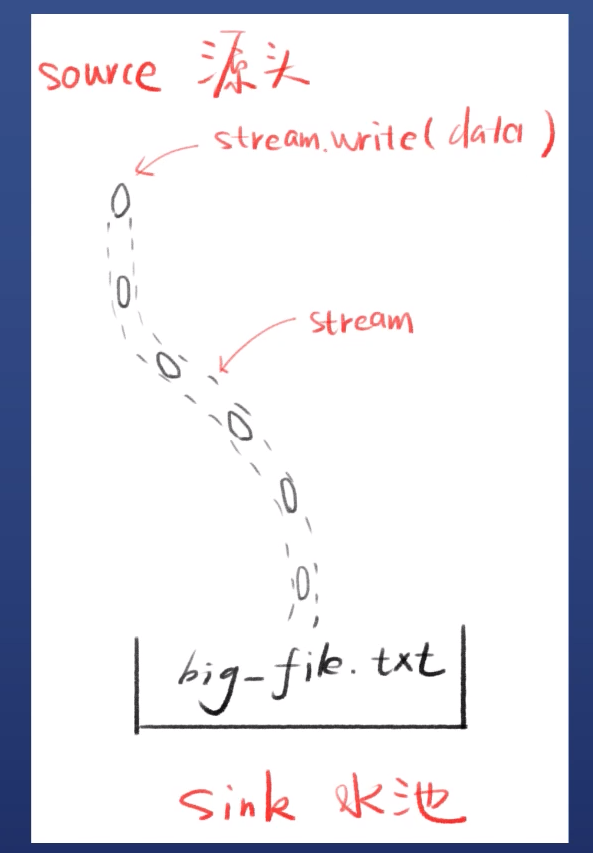 source 源头
stream.write(data)
stream
big-file.txt
sink 水池